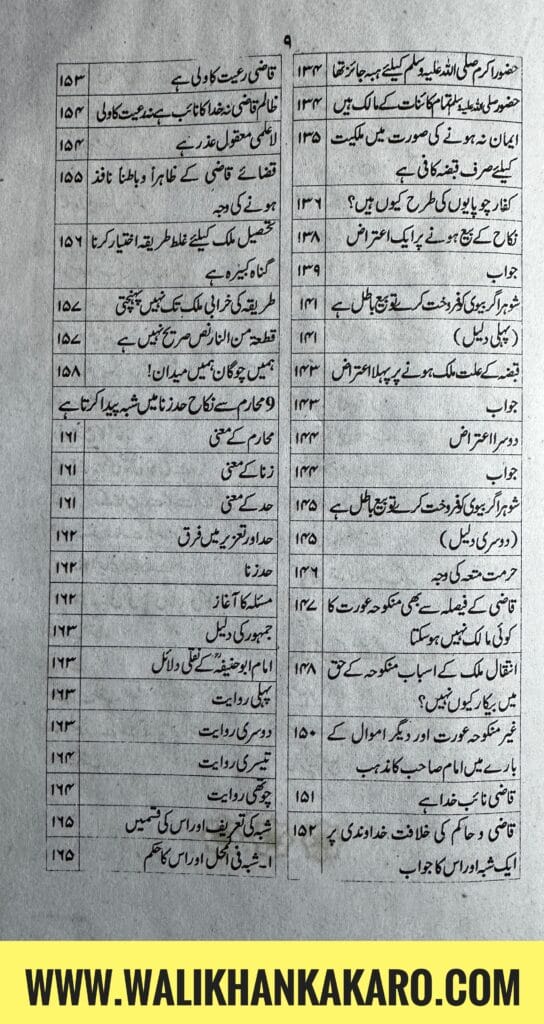 ۹
حضور اکرم صلی اللہ علیہ وسلم کیلئے ہبہ جائز تھا ۱۳۴
حضور صلی اللہ علیہ وسلم تمام کائنات کے مالک ہیں ۱۳۴
ایمان نہ ہونے کی صورت میں ملکیت ۱۳۵
کیلئے صرف قبضہ کافی ہے
کفار چوپایوں کی طرح کیوں ہیں؟ ۱۳۶
نکاح کے بیع ہونے پر ایک اعتراض ۱۳۸
جواب ۱۳۹
شوہر اگر بیوی کو فروخت کرے تو بیع باطل ہے ۱۴۱
(پہلی دلیل) ۱۴۱
قبضہ کے علت ملک ہونے پر پہلا اعتراض ۱۴۳
جواب ۱۴۳
دوسرا اعتراض ۱۴۴
جواب ۱۴۴
شوہر اگر بیوی کو فروخت کرے تو بیع باطل ہے ۱۴۵
(دوسری دلیل) ۱۴۵
حرمت متعہ کی وجہ ۱۴۶
قاضی کے فیصلہ سے بھی منکوحہ عورت کا ۱۴۷
کوئی مالک نہیں ہوسکتا
انتقال ملک کے اسباب منکوحہ کے حق ۱۴۸
میں بیکار کیوں نہیں؟
غیر منکوحہ عورت اور دیگر اموال کے ۱۵۰
بارے میں امام صاحب کا مذہب
قاضی نائب خدا ہے ۱۵۱
قاضی و حاکم کی خلافت خداوندی پر ۱۵۲
ایک شبہ اور اس کا جواب
قاضی رعیت کا ولی ہے ۱۵۳
ظالم قاضی نہ خدا کا نائب ہے نہ رعیت کا ولی ۱۵۴
لاعلمی معقول عذر ہے ۱۵۴
قضائے قاضی کے ظاہراً و باطناً نافذ ۱۵۵
ہونے کی وجہ
تحصیل ملک کیلئے غلط طریقہ اختیار کرنا ۱۵۶
گناہ کبیرہ ہے
طریقہ کی خرابی ملک تک نہیں پہنچتی ۱۵۷
قطعۃ من النار نص صریح نہیں ہے ۱۵۷
ہمیں چوگاں ہمیں میدان! ۱۵۸
9 محارم سے نکاح حد زنا میں شبہ پیدا کرتا ہے
محارم کے معنی ۱۶۱
زنا کے معنی ۱۶۱
حد کے معنی ۱۶۱
حد اور تعزیر میں فرق ۱۶۲
حد زنا ۱۶۲
مسئلہ کا آغاز ۱۶۲
جمہور کی دلیل ۱۶۳
امام ابو حنیفہؒ کے نقلی دلائل ۱۶۳
پہلی روایت ۱۶۳
دوسری روایت ۱۶۳
تیسری روایت ۱۶۴
چوتھی روایت ۱۶۴
شبہ کی تعریف اور اس کی قسمیں ۱۶۵
۱۔ شبہ فی المحل اور اس کا حکم ۱۶۵
WWW.WALIKHANKAKARO.COM